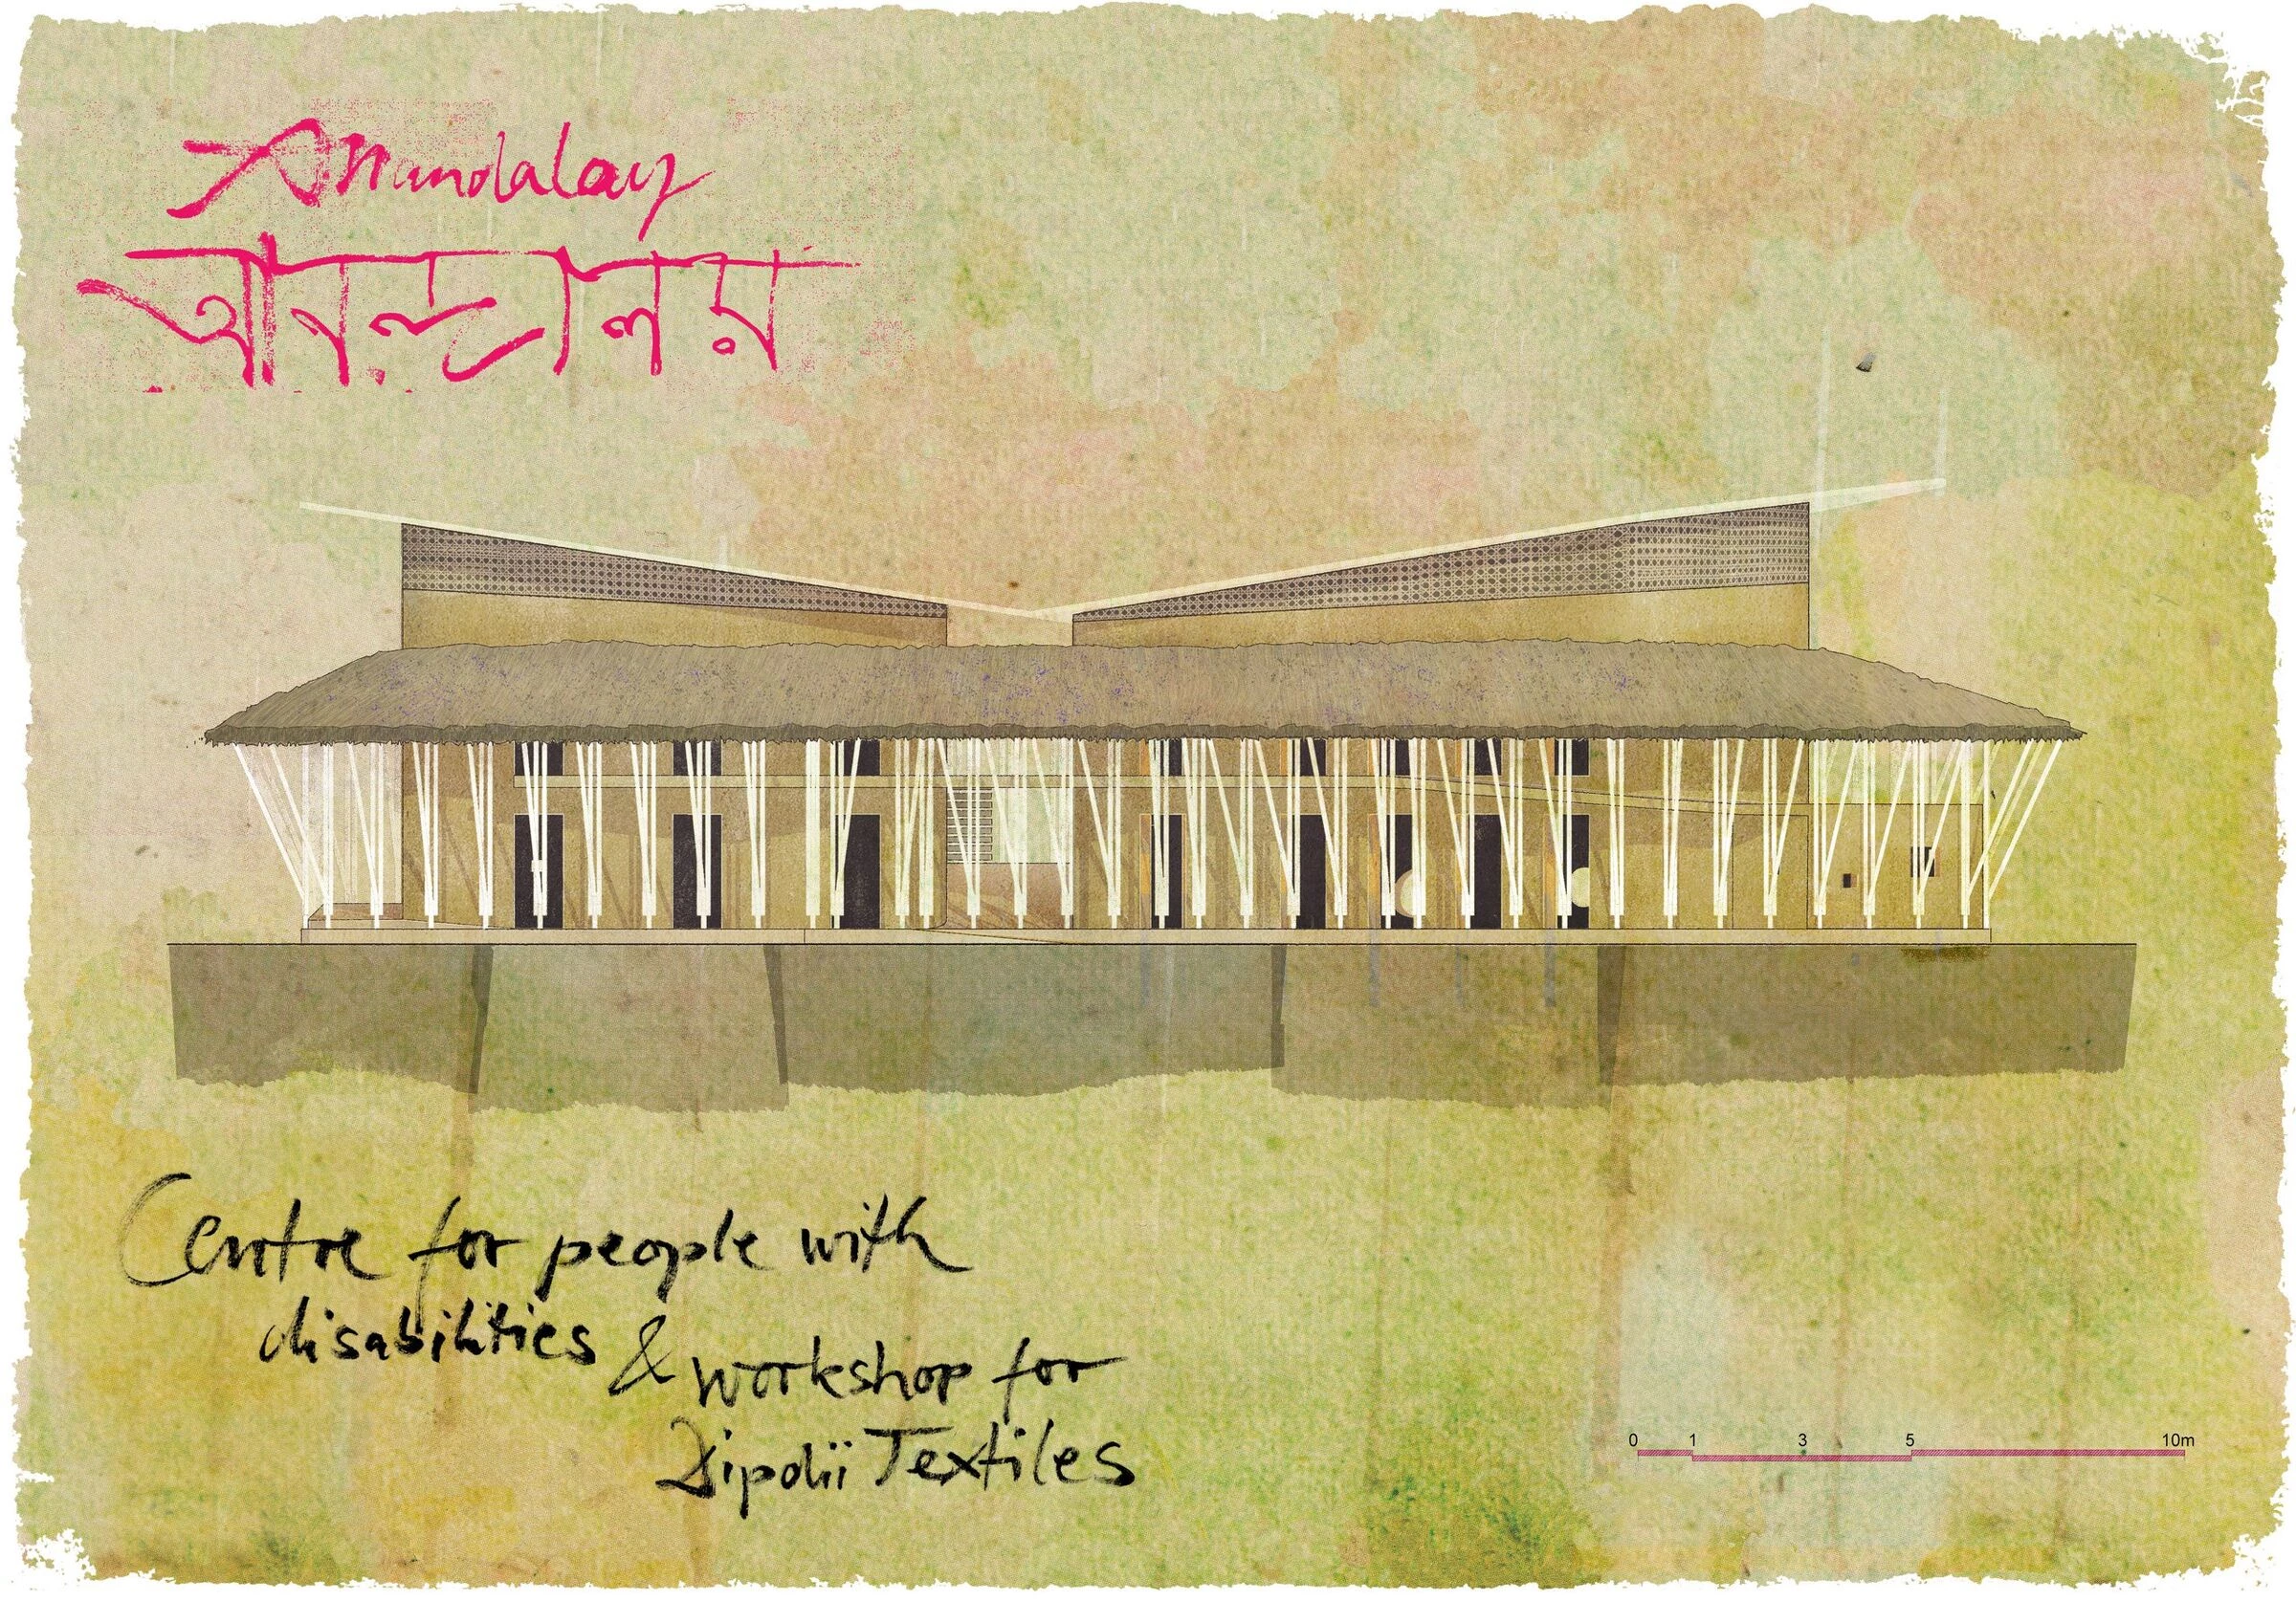 Anandalay
আনন্দালয়
Centre for people with
disabilities & workshop for
Dipdii Textiles
0 1 3 5 10m